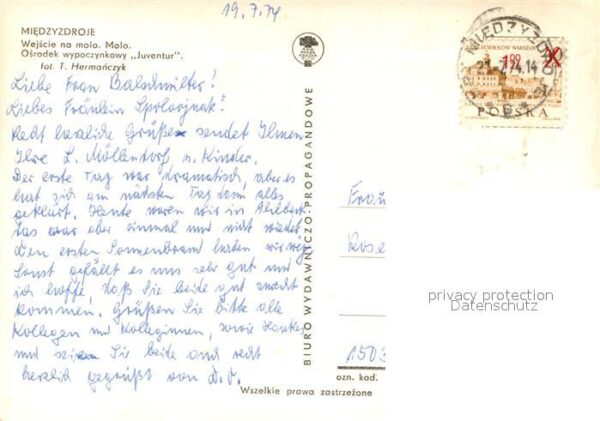 19.7.74
MIĘDZYZDROJE
Wejście na molo. Molo.
Ośrodek wypoczynkowy „Juventur”.
fot. T. Hermańczyk
Liebe Frau
Liebes Fräulein
Recht herzliche Grüße sendet Ihnen
Ihre L. Möllendorf u. Kinder.
Der erste Tag war dramatisch, aber es
hat sich am nächsten Tag dann alles
geklärt. Heute waren wir in
Das war aber einmal und nicht wieder.
Den ersten Sonnenbrand haben wir weg.
Sonst gefällt es uns sehr gut und
ich hoffe, daß Sie beide gut zurecht
kommen. Grüßen Sie bitte alle
Kollegen und Kolleginnen, sowie
und seien Sie beide und recht
herzlich gegrüßt von
BIURO WYDAWNICZO-PROPAGANDOWE
MIĘDZYZDROJE
21.7.74.14
WARSZAWA
1,50
POLSKA
Frau
Rose
1502
ozn. kod.
Wszelkie prawa zastrzeżone
privacy protection
Datenschutz